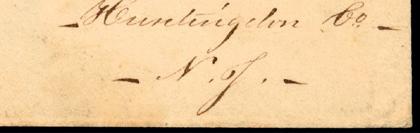 - Huntingdon Co. -
- N. J. -